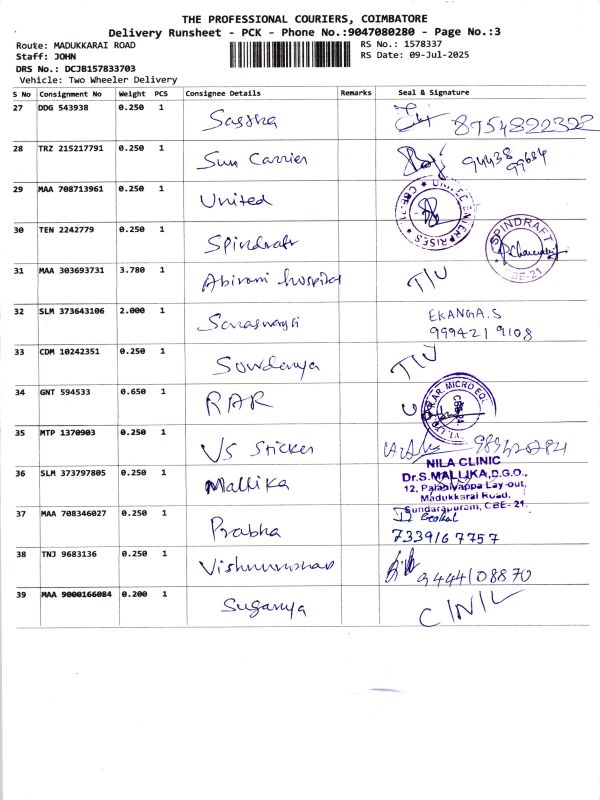 THE PROFESSIONAL COURIERS, COIMBATORE
Delivery Runsheet - PCK - Phone No.:9047080280 - Page No.:3
Route: MADUKKARAI ROAD
RS No.: 1578337
Staff: JOHN
RS Date: 09-Jul-2025
DRS No.: DCJB157833703
Vehicle: Two Wheeler Delivery
S No Consignment No Weight PCS Consignee Details Remarks Seal & Signature
27 DDG 543938 0.250 1 Sastha 8754822322
28 TRZ 215217791 0.250 1 Sun Carrier 94438 99684
29 MAA 708713961 0.250 1 United
UNITED ENTERPRISES ★ CBE-21 ★
30 TEN 2242779 0.250 1 Spindraft
SPINDRAFT CBE-21
31 MAA 303693731 3.780 1 Abirami hospital TIU
32 SLM 373643106 2.000 1 Saraswathi EKANGA.S
999421 9108
33 CDM 10242351 0.250 1 Sowdanya TIU
34 GNT 594533 0.650 1 RAR
R.A.R. MICRO EQL PVT. LTD CBE-21
35 MTP 1370903 0.250 1 VS Sticker
36 SLM 373797805 0.250 1 Mallika NILA CLINIC
Dr.S.MALLIKA,D.G.O.,
12, Palaniyappa Lay-out,
Madukkarai Road,
Sundarapuram, CBE- 21.
37 MAA 708346027 0.250 1 Prabha D. Gokul
7339167757
38 TNJ 9683136 0.250 1 9444108870
39 MAA 9000166084 0.200 1 Suganya C/N/L